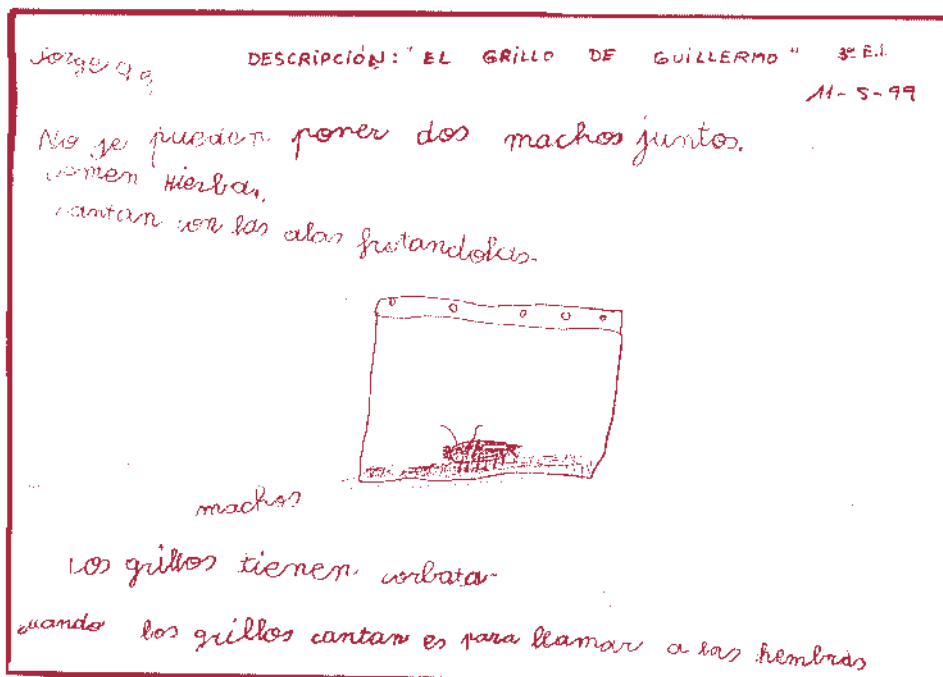 Jorge
DESCRIPCIÓN: "EL GRILLO DE GUILLERMO" 3º E.I.
11-5-99
No se pueden poner dos machos juntos.
comen Hierba.
cantan con las alas frotandolas.
machos
Los grillos tienen corbata.
cuando los grillos cantan es para llamar a las hembras